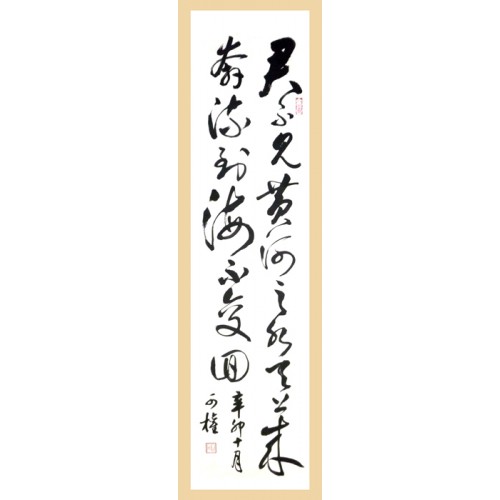 君不見黄河之水天上来
奔流到海不復回
辛卯十月
可權